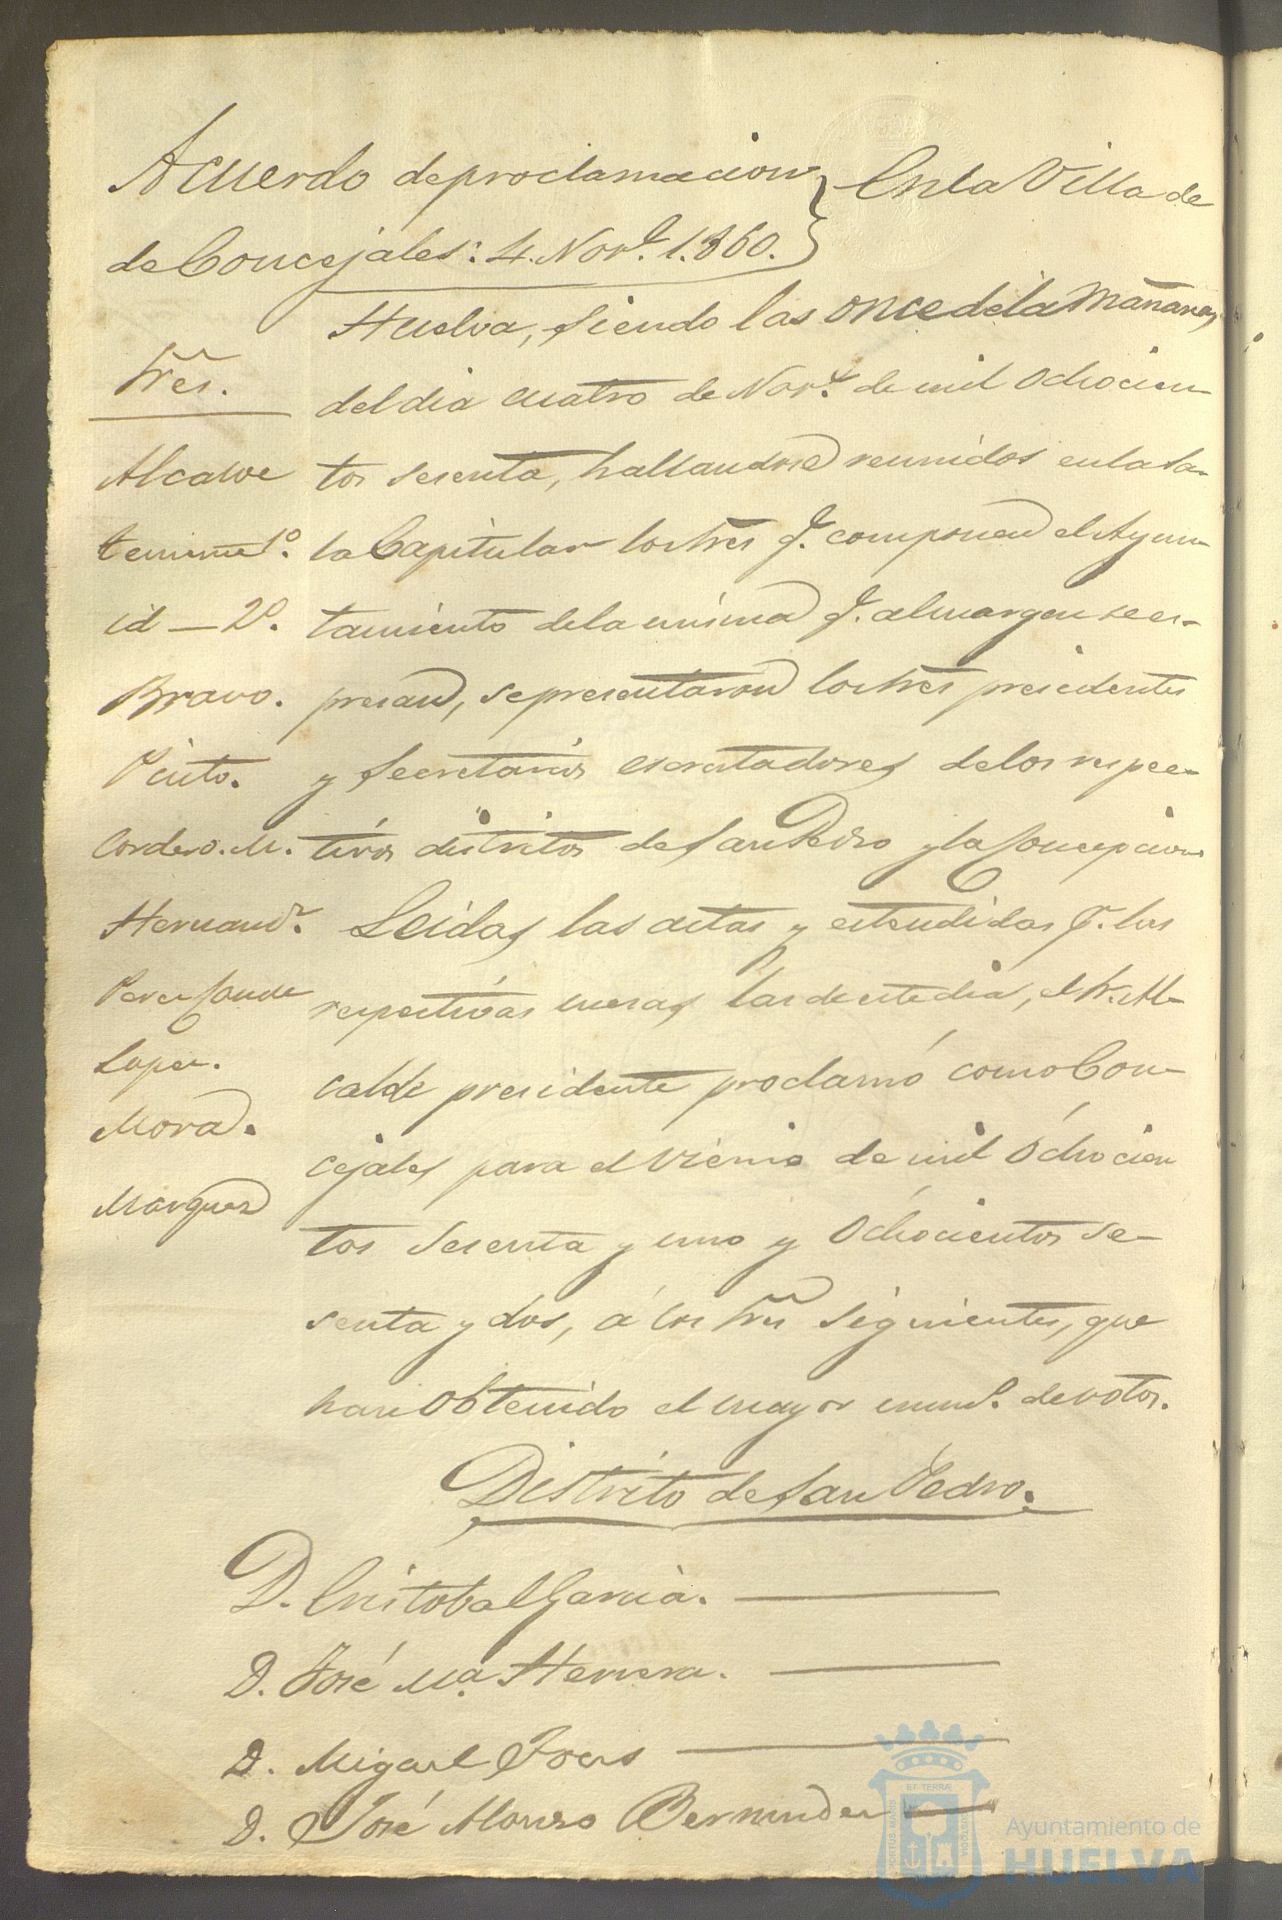 Acuerdo de proclamacion
de Concejales: 4. Nov.e 1.860.
En la Villa de
Huelva, siendo las once de la mañana,
del dia cuatro de Nov.e de mil ochocien-
tos sesenta, hallandose reunidos en la Sa-
la Capitular los Sres q.e componen el Ayun-
tamiento de la misma q.e al margen se es-
presan, se presentaron los Sres presidentes
y Secretarios escrutadores de los respec-
tivos distritos de San Pedro y la Concepcion
Leidas las actas y estendidas p.r las
respectivas mesas las de este dia, el Sr. Al-
calde presidente proclamó como Con-
cejales para el vienio de mil ochocien
tos sesenta y uno y ochocientos se-
senta y dos, á los Sres siguientes, que
han obtenido el mayor num.o de votos.
Sres.
Alcalde
teniente 1.o
id — 2.o
Bravo.
Pinto.
Cordero. M.
Hernand.z
Perez
Lopez.
Mora.
Marquez
Distrito de San Pedro.
D. Cristobal Garcia.
D. José M.a Herrera.
D. Miguel
D. José Alonso Bermudez
ET TERRÆ
PORTUS MARIS
CUSTODIA
Ayuntamiento de
HUELVA